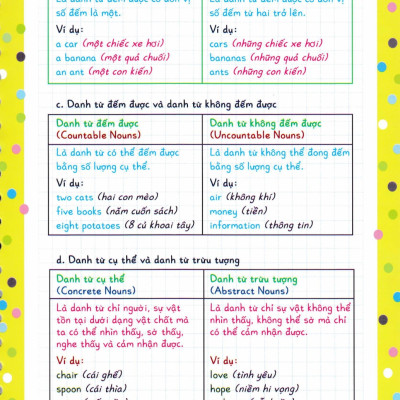 số đếm là một.
số đếm từ hai trở lên.
Ví dụ:
Ví dụ:
a car (một chiếc xe hơi)
cars (những chiếc xe hơi)
a banana (một quả chuối)
bananas (những quả chuối)
an ant (một con kiến)
ants (những con kiến)
c. Danh từ đếm được và danh từ không đếm được
Danh từ đếm được
(Countable Nouns)
Danh từ không đếm được
(Uncountable Nouns)
Là danh từ có thể đếm được
bằng số lượng cụ thể.
Là danh từ không thể đong đếm
bằng số lượng cụ thể.
Ví dụ:
two cats (hai con mèo)
five books (năm cuốn sách)
eight potatoes (8 củ khoai tây)
Ví dụ:
air (không khí)
money (tiền)
information (thông tin)
d. Danh từ cụ thể và danh từ trừu tượng
Danh từ cụ thể
(Concrete Nouns)
Danh từ trừu tượng
(Abstract Nouns)
Là danh từ chỉ người, sự vật
tồn tại dưới dạng vật chất mà
ta có thể nhìn thấy, sờ thấy,
nghe thấy và cảm nhận được.
Là danh từ chỉ sự vật không thể
nhìn thấy, không thể sờ mà chỉ
có thể cảm nhận được.
Ví dụ:
chair (cái ghế)
spoon (cái thìa)
Ví dụ:
love (tình yêu)
hope (niềm hi vọng)